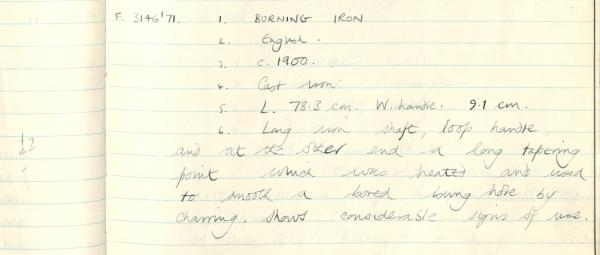 F. 3146'71. 1. BURNING IRON
2. English.
3. c. 1900.
4. Cast iron.
5. L. 78.3 cm. W. handle. 9.1 cm.
6. Long iron shaft, loop handle,
and at the other end a long tapering
point which was heated and used
to smooth a bored bung hole by
charring. Shows considerable signs of use.